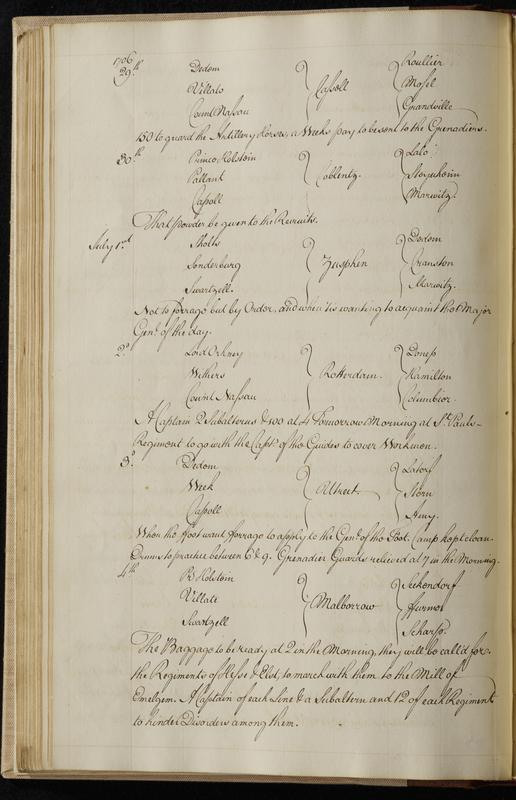 1706
29th Dedem } Cassell { Roullier
Villato Mosel
Count Nassau Grandville
150 to guard the Artillery Horses, a Weeks pay to be sent to the Grenadiers.
30th Prince Holstein } Coblentz { Lalo
Pallant
Cassell Marwitz
That powder be given to the Recruits.
July 1st Sholts } Zusphen { Dedem
Sonderburg Cranston
Swartzell. Marwitz.
Not to forrage but by Order, and when tis wanting to acquaint the Major
Genl. of the day.
2d Lord Orkney } Rotterdam. {
Withers Hamilton
Count Nassau Columbier.
A Captain 2 Subalterns & 100 at 4 Tomorrow Morning at St. Pauls
Regiment to go with the Capt. of the Guides to cover Workmen.
3d Dedem } {
Week Stern
Cassell Amy.
When the foot want forrage to apply to the Genl. of the Foot. Camp kept clean
Drums to practice between 6 & 9. Grenadier Guards relieved at 7 in the Morning.
4th Pr. Holstein } Malborrow { Seckendorf
Villate
Swartzell
The Baggage to be ready at 2 in the Morning, they will be call'd for
the Regiments of Hesse & Elst, to march with them to the Mill of
Emelgem. A Captain of each Line & a Subaltern and 12 of each Regiment
to hinder Disorders among them.